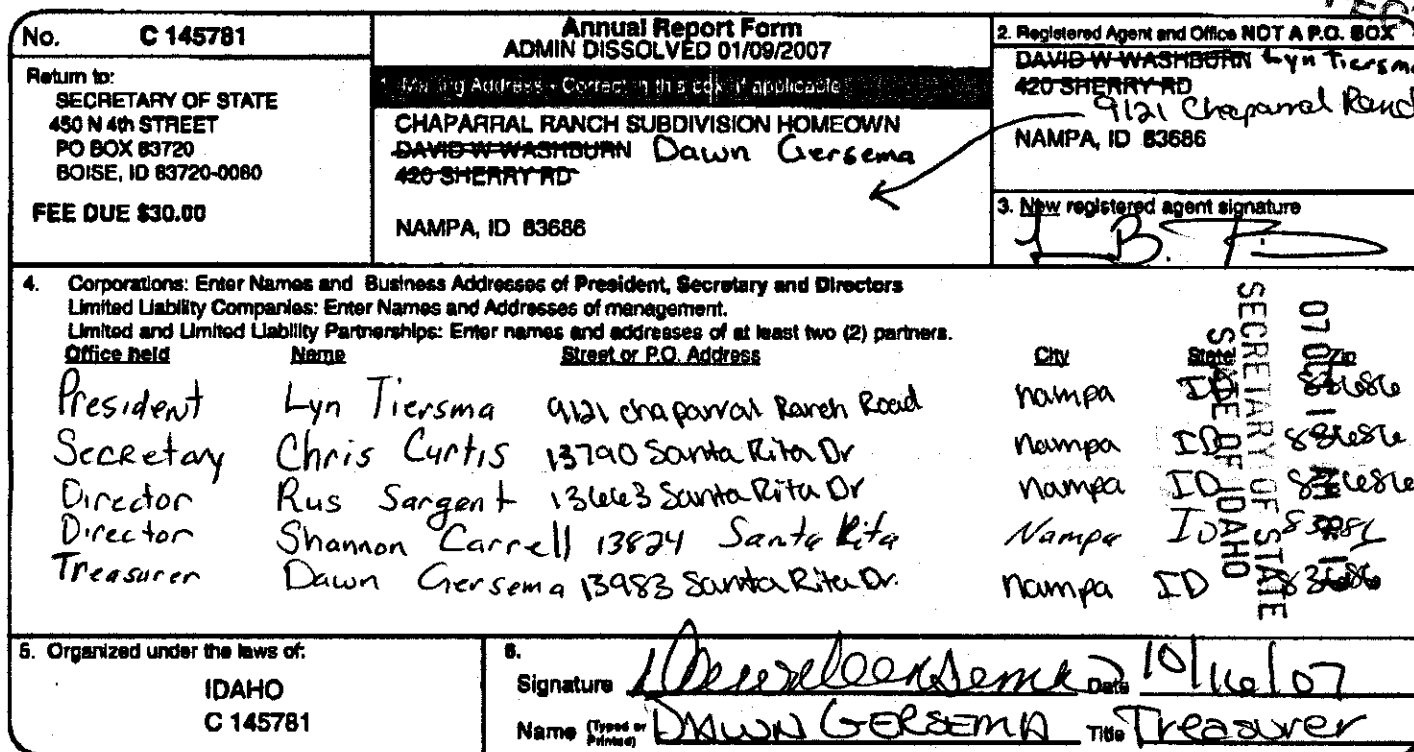 No. C 145781
Return to:
SECRETARY OF STATE
450 N 4th STREET
PO BOX 83720
BOISE, ID 83720-0080
FEE DUE $30.00
Annual Report Form
ADMIN DISSOLVED 01/09/2007
1. Mailing Address - Correct in this box if applicable
CHAPARRAL RANCH SUBDIVISION HOMEOWN
DAVID W WASHBURN Dawn Gersema
420 SHERRY RD
NAMPA, ID 83686
2. Registered Agent and Office NOT A P.O. BOX
DAVID W WASHBURN Lyn Tiersma
420 SHERRY RD
9121 Chaparral Ranc
NAMPA, ID 83686
3. New registered agent signature
4. Corporations: Enter Names and Business Addresses of President, Secretary and Directors
Limited Liability Companies: Enter Names and Addresses of management.
Limited and Limited Liability Partnerships: Enter names and addresses of at least two (2) partners.
Office held Name Street or P.O. Address City State Zip
President Lyn Tiersma 9121 chaparral Ranch Road nampa ID 83686
Secretary Chris Curtis 13790 Santa Rita Dr nampa ID 83686
Director Rus Sargent 13663 Santa Rita Dr nampa ID 83686
Director Shannon Carrell 13824 Santa Rita Nampa ID
Treasurer Dawn Gersema 13983 Santa Rita Dr. nampa ID 83686
SECRETARY OF STATE
STATE OF IDAHO
5. Organized under the laws of:
IDAHO
C 145781
6.
Signature Dawn Gersema Date 10/16/07
Name (Typed or Printed) DAWN GERSEMA Title Treasurer